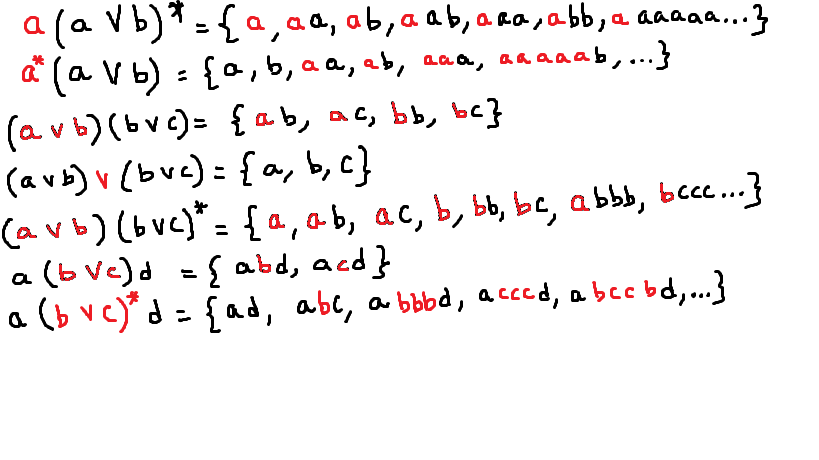 a(a ∨ b)* = {a, aa, ab, aab, aaa, abb, a aaaaa...}
a*(a ∨ b) = {a, b, aa, ab, aaa, aaaaab, ...}
(a ∨ b)(b ∨ c) = {ab, ac, bb, bc}
(a ∨ b) ∨ (b ∨ c) = {a, b, c}
(a ∨ b)(b ∨ c)* = {a, ab, ac, b, bb, bc, abbb, bccc...}
a(b ∨ c)d = {abd, acd}
a(b ∨ c)*d = {ad, abc, abbbd, acccd, abccbd, ...}